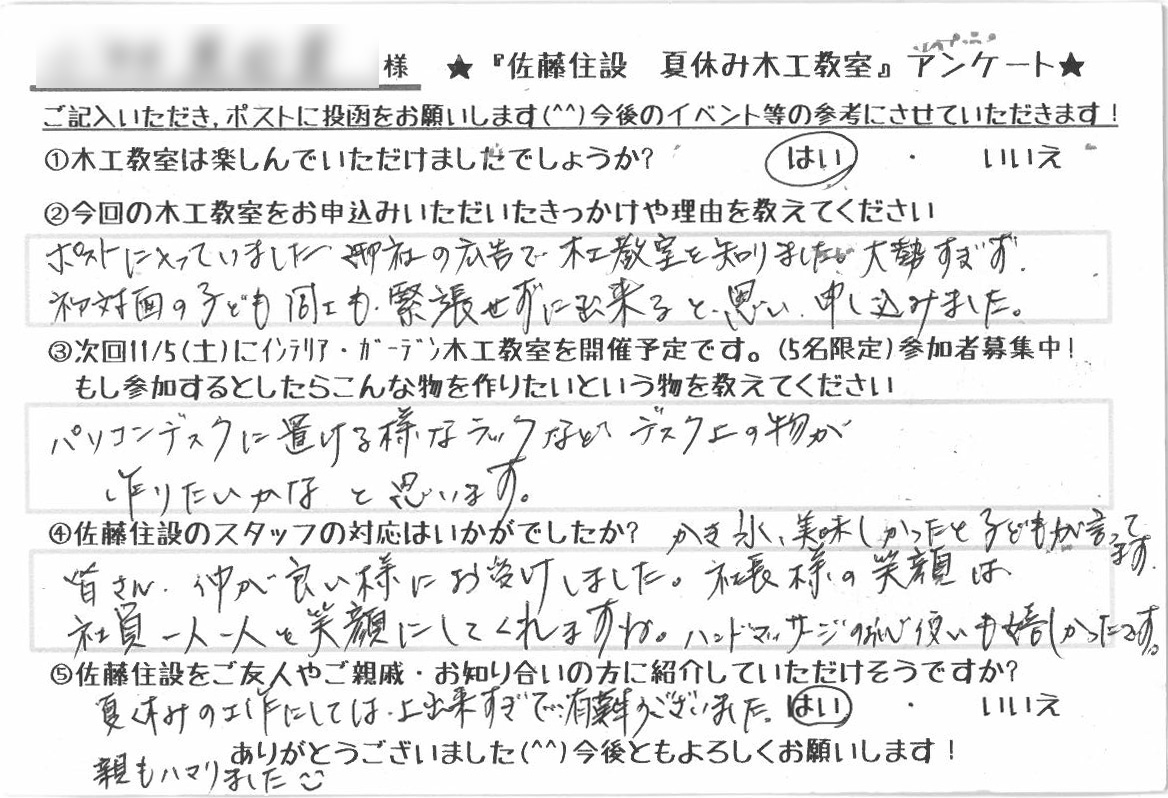 様 ★『佐藤住設 夏休み木工教室』アンケート★
ご記入いただき,ポストに投函をお願いします(^^)今後のイベント等の参考にさせていただきます!
①木工教室は楽しんでいただけましたでしょうか? はい ・ いいえ
②今回の木工教室をお申込みいただいたきっかけや理由を教えてください
ポストに入っていました 御社の広告で 木工教室を知りました 大勢すぎず.
初対面の子ども同士も.緊張せずに出来ると思い、申し込みました。
③次回11/5(土)にインテリア・ガーデン木工教室を開催予定です。(5名限定)参加者募集中!
もし参加するとしたらこんな物を作りたいという物を教えてください
パソコンデスクに置ける様なラックなど、デスク上の物が
作りたいかな と思います。
④佐藤住設のスタッフの対応はいかがでしたか? かき氷、美味しかったと子どもが言って
ます.
皆さん.仲が良い様にお受けしました。社長様の笑顔は
社員一人一人を笑顔にしてくれますね。ハンドマッサージのお心使いも嬉しかったです。
⑤佐藤住設をご友人やご親戚・お知り合いの方に紹介していただけそうですか?
夏休みの工作にしては、上出来すぎで…有難うございました。 はい ・ いいえ
ありがとうございました(^^)今後ともよろしくお願いします!
親もハマりました